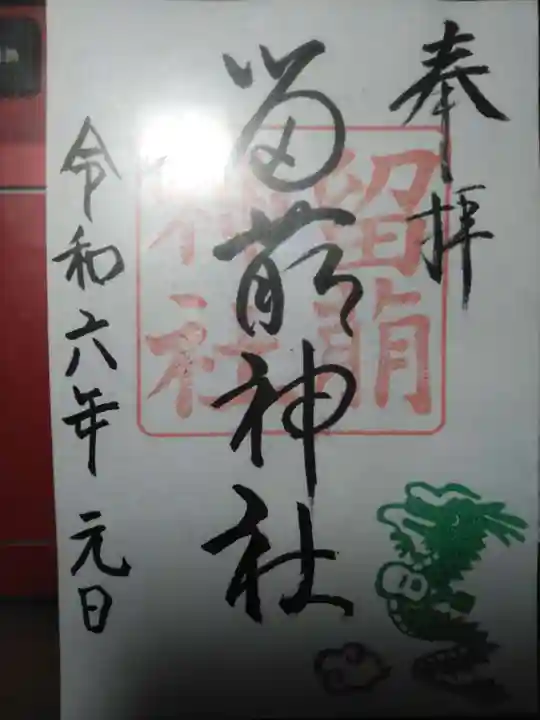 奉拝
留萌神社
留萌
神社
令和六年 元日